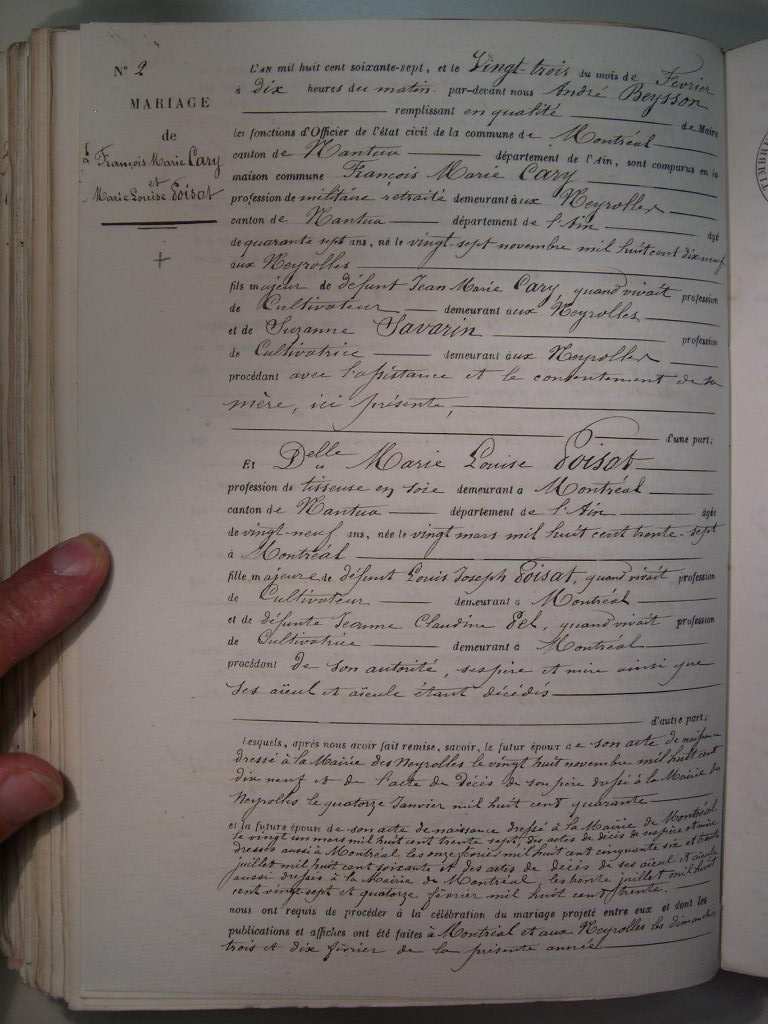 N° 2
MARIAGE
de
François Marie Cary
et
Marie Louise Poisat
L'AN mil huit cent soixante-sept, et le Vingt-trois du mois de Février
à dix heures du matin par-devant nous André Beysson
remplissant en qualité de Maire
les fonctions d'Officier de l'état civil de la commune de Montréal
canton de Nantua département de l'Ain, sont comparus en la
maison commune François Marie Cary
profession de militaire retraité demeurant aux Neyrolles
canton de Nantua département de l'Ain âgé
de quarante sept ans, né le vingt-sept novembre mil huit cent dix neuf
aux Neyrolles
fils majeur de défunt Jean Marie Cary, quand vivait profession
de Cultivateur demeurant aux Neyrolles
et de Suzanne Savarin profession
de Cultivatrice demeurant aux Neyrolles
procédant avec l'assistance et le consentement de sa
mère, ici présente,
d'une part;
Et Delle Marie Louise Poisat
profession de tisseuse en soie demeurant à Montréal
canton de Nantua département de l'Ain âgée
de vingt-neuf ans, née le vingt mars mil huit cent trente-sept
à Montréal
fille majeure de défunt Louis Joseph Poisat, quand vivait profession
de Cultivateur demeurant à Montréal
et de défunte Jeanne Claudine Pel, quand vivait profession
de Cultivatrice demeurant à Montréal
procédant de son autorité, ses père et mère ainsi que
ses aïeul et aïeule étant décédés
d'autre part;
Lesquels, après nous avoir fait remise, savoir, le futur époux de son acte de naissance
dressé à la Mairie des Neyrolles le vingt huit novembre mil huit cent
dix neuf et de l'acte de décès de son père dressé à la Mairie des
Neyrolles le quatorze Janvier mil huit cent quarante
et la future épouse de son acte de naissance dressé à la Mairie de Montréal
le vingt un mars mil huit cent trente sept, des actes de décès de ses père et mère
dressés aussi à Montréal les onze mil huit cent cinquante six et trente
juillet mil huit cent soixante et des actes de décès de ses aïeul et aïeule
aussi dressés à la Mairie de Montréal les trente juillet mil huit
cent vingt-sept et quatorze février mil huit cent trente.
nous ont requis de procéder à la célébration du mariage projeté entre eux et dont les
publications et affiches ont été faites à Montréal et aux Neyrolles les dimanches
trois et dix février de la présente année
TIMBRE